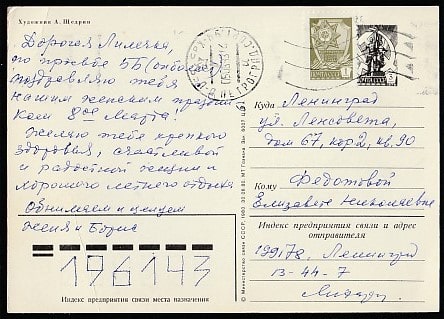 Художник А. Щедрин
Дорогая Лилечка,
поздравляю тебя
нашим женским праздни
ком 8ое Марта!
Желаю тебе крепкого
здоровья, счастливой
и радостной жизни и
хорошего летнего отдыха
Обнимаем и целуем
Женя и Борис
ПОЧТА СССР
1
Куда Ленинград
ул. Ленсовета,
дом 67, кор2, кв. 90
Кому Федотовой
Елизавете Николаевне
Индекс предприятия связи и адрес
отправителя
199178. Ленинград
13-44-7
196143
Индекс предприятия связи места назначения